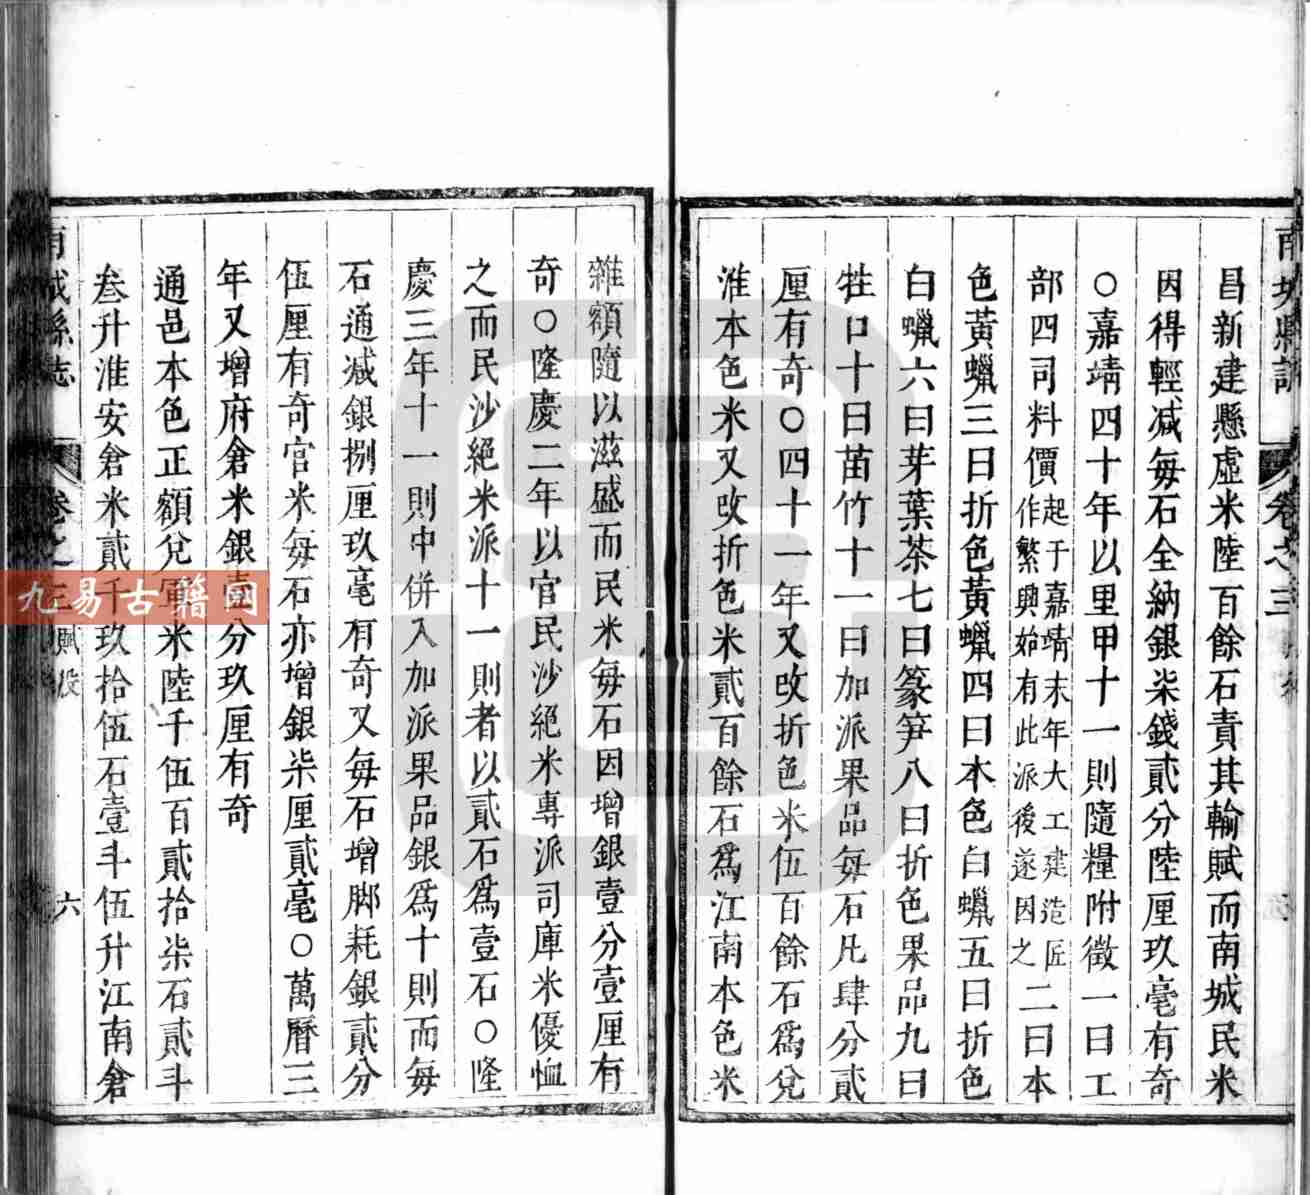 昌新建懸虛米陸百餘石責其輸賦而南城民米
因得輕減每石全納銀柒錢貳分陸厘玖毫有奇
○嘉靖四十年以里甲十一則隨糧附徵一曰工
部四司料價起于嘉靖末年大工建造匠作繁興始有此派後遂因之二曰本
色黃蠟三曰折色黃蠟四曰本色白蠟五曰折色
白蠟六曰芽葉茶七曰篆笋八曰折色果品九曰
牲口十曰苗竹十一曰加派果品每石凡肆分貳
厘有奇○四十一年又改折色米伍百餘石爲兌
淮本色米又改折色米貳百餘石爲江南本色米
雜額隨以滋盛而民米每石因增銀壹分壹厘有
奇○隆慶二年以官民沙絕米專派司庫米優恤
之而民沙絕米派十一則者以貳石爲壹石○隆
慶三年十一則中併入加派果品銀爲十則而每
石通減銀捌厘玖毫有奇又每石增脚耗銀貳分
伍厘有奇官米每石亦增銀柒厘貳毫○萬曆三
年又增府倉米銀壹分玖厘有奇
通邑本色正額兌軍米陸千伍百貳拾柒石貳斗
叁升淮安倉米貳千玖拾伍石壹斗伍升江南倉
南城縣志 卷之三 賦役 六
九易古籍网